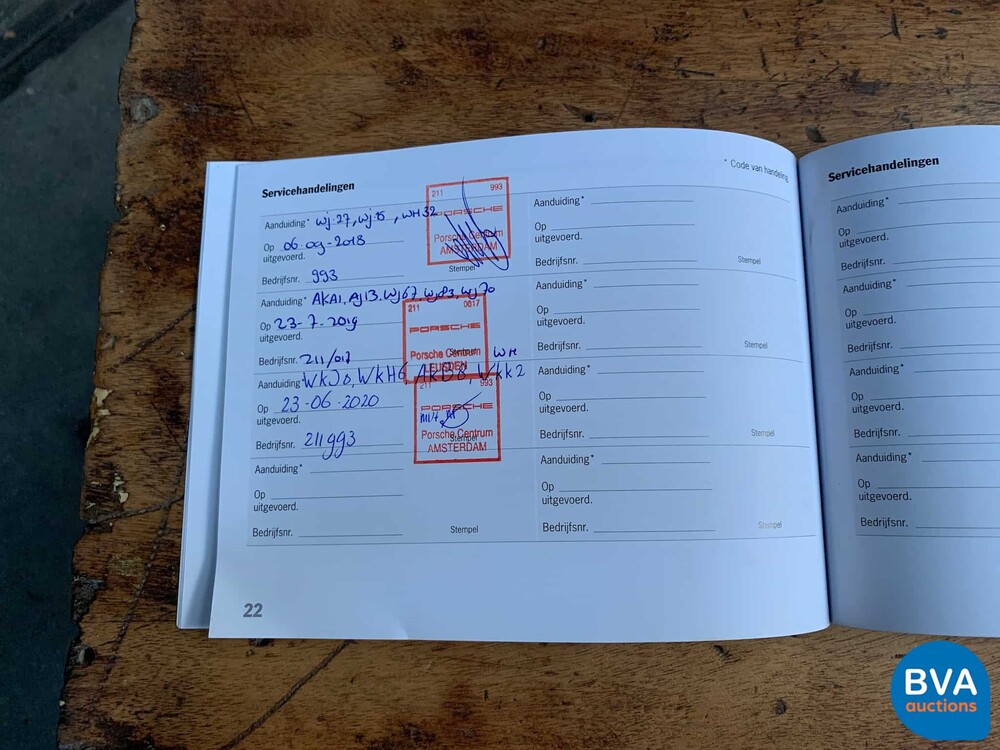 Servicehandelingen
* Code van handeling
Aanduiding* Wj27, Wj15, WH32
Op 06-09-2018
uitgevoerd.
Bedrijfsnr. 993
Stempel
211 993
PORSCHE
Porsche Centrum
AMSTERDAM
Aanduiding* AKA1, Aj13, Wj67, Wj83, Wj70
Op 23-7-2019
uitgevoerd.
Bedrijfsnr. 211/017
Stempel
211 0017
PORSCHE
Porsche Centrum
LEUSDEN
Aanduiding WkJ0, WkH6, AkD8, Wkk2
WH
Op 23-06-2020
uitgevoerd.
Bedrijfsnr. 211993
Stempel
211 993
PORSCHE
Porsche Centrum
AMSTERDAM
Aanduiding*
Op
uitgevoerd.
Bedrijfsnr.
Stempel
Aanduiding*
Op
uitgevoerd.
Bedrijfsnr.
Stempel
Aanduiding*
Op
uitgevoerd.
Bedrijfsnr.
Stempel
Aanduiding*
Op
uitgevoerd.
Bedrijfsnr.
Stempel
Aanduiding*
Op
uitgevoerd.
Bedrijfsnr.
Stempel
22
Servicehandelingen
Aanduiding*
Op
uitgevoerd.
Bedrijfsnr.
Aanduiding*
Op
uitgevoerd.
Bedrijfsnr.
Aanduiding*
Op
uitgevoerd.
Bedrijfsnr.
Aanduiding*
Op
uitgevoerd.
Bedrijfsnr.
BVA
auctions